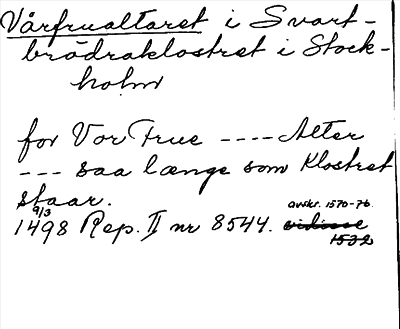 Vårfrualtaret i Svart-
brödraklostret i Stock-
holm
for Vor Frue ---- Alter
--- saa længe som Klostret
staar.
9/3
1498 Rep. II nr 8544. avskr. 1570-76. vidisse
1532